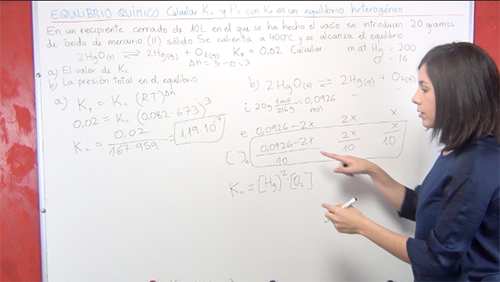 EQUILIBRIO QUÍMICO. Calcular Kc y Pt con Kp en un equilibrio heterogéneo
En un recipiente cerrado de 10L en el que se ha hecho el vacío se introducen 20 gramos
de óxido de mercurio (II) sólido. Se calienta a 400ºC y se alcanza el equilibrio
2HgO(s) ⇌ 2Hg(g) + O2(g) Kp = 0,02 Calcular
mat Hg = 200
O = 16
Δn = 3-0=3
a) El valor de Kc
b) La presión total en el equilibrio
a) Kp = Kc (RT)^Δn
0,02 = Kc (0,082·673)^3
Kc = 0,02 / 167 959 = 1,19·10
b) 2HgO(s) ⇌ 2Hg(g) + O2(g)
i. 20g 1mol/216g = 0,0926 mol - -
2x x
e 0,0926-2x 2x x
[ ]e 0,0926-2x / 10 2x / 10 x / 10
Kc = [Hg]^2·[O2]